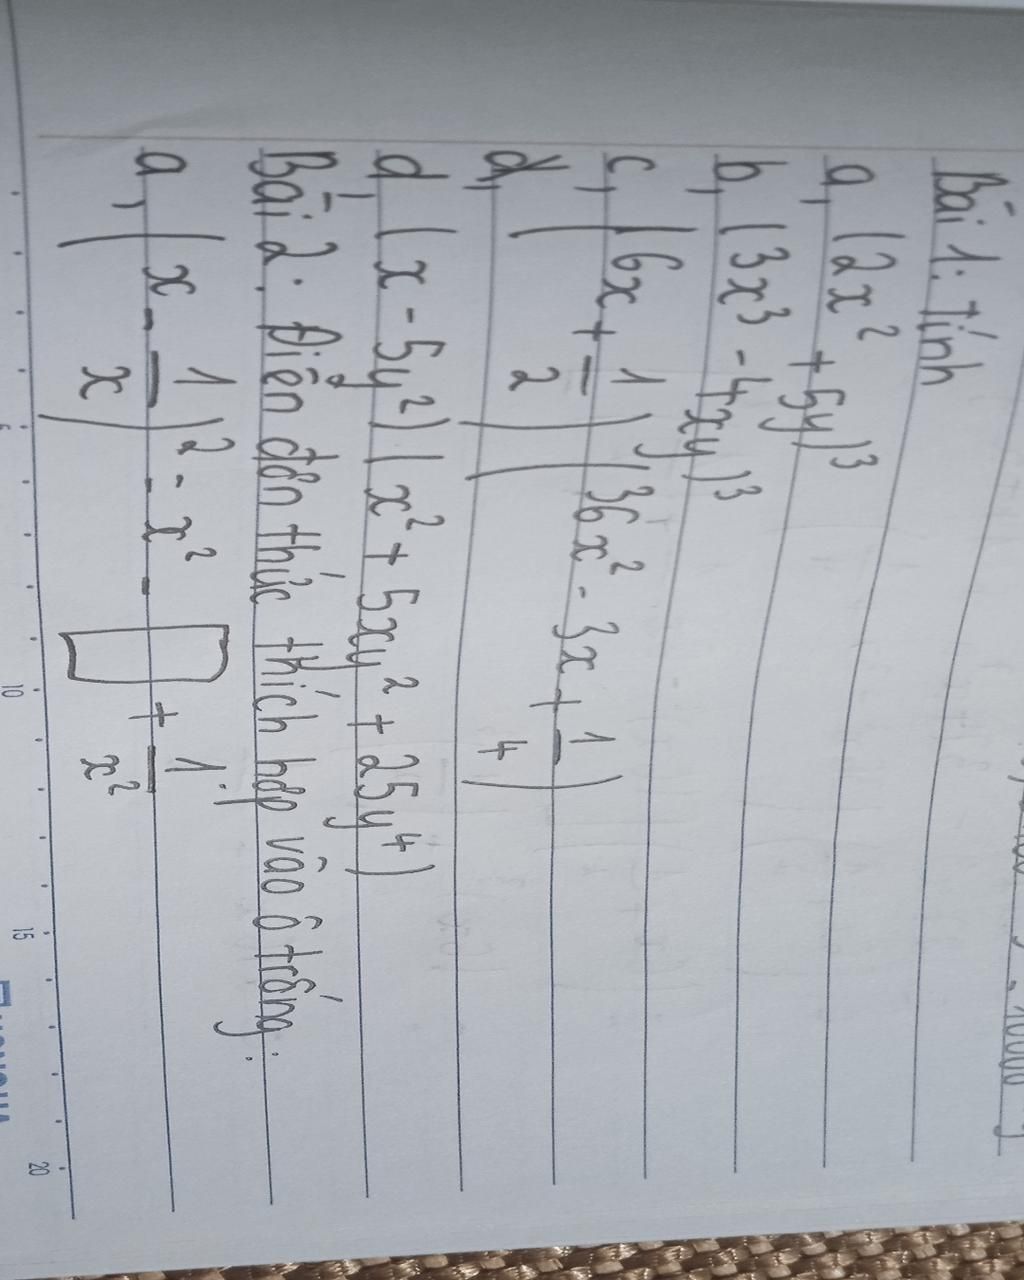 Bài 1: Tính
a, (2x² + 5y)³
b, (3x³ - 4xy)³
c, (6x + 1/2)(36x² - 3x + 1/4)
d,
d, (x - 5y²)(x² + 5xy² + 25y⁴)
Bài 2: Điền đơn thức thích hợp vào ô trống:
a, (x - 1/x)² = x² - □ + 1/x².
5 10 15 20